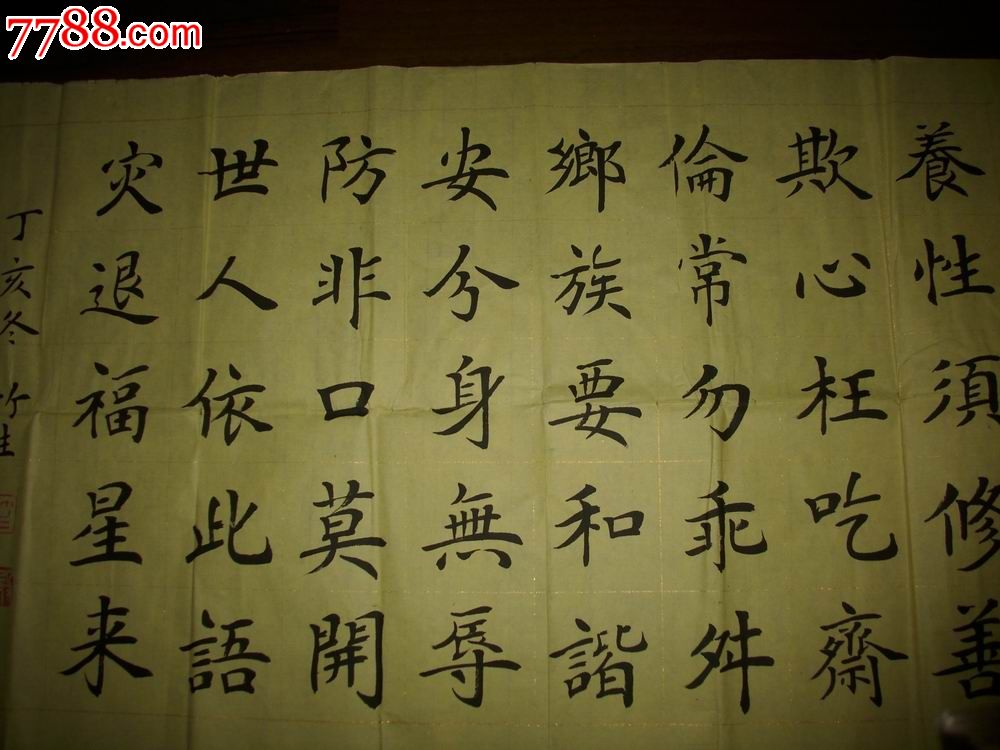 養性須修善
欺心枉吃齋
倫常勿乖舛
鄉族要和諧
安分身無辱
防非口莫開
世人依此語
災退福星来
丁亥冬 竹生
7788.com